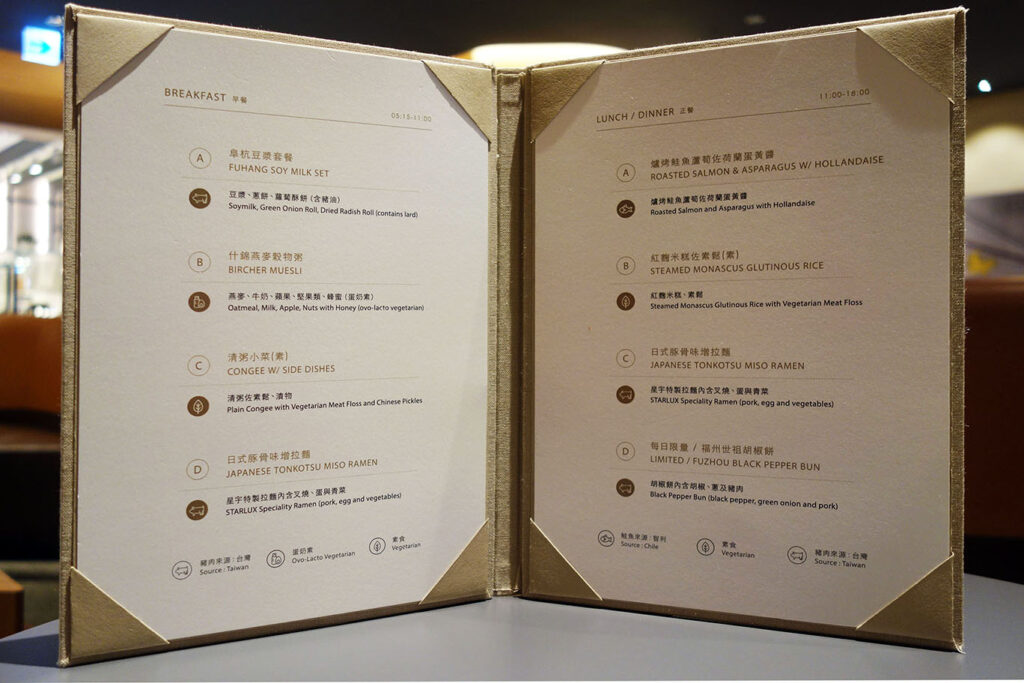 BREAKFAST 早餐
05:15-11:00
A
阜杭豆漿套餐
FUHANG SOY MILK SET
豆漿、蔥餅、蘿蔔酥餅（含豬油）
Soymilk, Green Onion Roll, Dried Radish Roll (contains lard)
B
什錦燕麥穀物粥
BIRCHER MUESLI
燕麥、牛奶、蘋果、堅果類、蜂蜜（蛋奶素）
Oatmeal, Milk, Apple, Nuts with Honey (ovo-lacto vegetarian)
C
清粥小菜(素)
CONGEE W/ SIDE DISHES
清粥佐素鬆、漬物
Plain Congee with Vegetarian Meat Floss and Chinese Pickles
D
日式豚骨味增拉麵
JAPANESE TONKOTSU MISO RAMEN
星宇特製拉麵內含叉燒、蛋與青菜
STARLUX Speciality Ramen (pork, egg and vegetables)
豬肉來源：台灣
Source : Taiwan
蛋奶素
Ovo-Lacto Vegetarian
素食
Vegetarian
LUNCH / DINNER 正餐
11:00-18:00
A
爐烤鮭魚蘆筍佐荷蘭蛋黃醬
ROASTED SALMON & ASPARAGUS W/ HOLLANDAISE
爐烤鮭魚蘆筍佐荷蘭蛋黃醬
Roasted Salmon and Asparagus with Hollandaise
B
紅麴米糕佐素鬆(素)
STEAMED MONASCUS GLUTINOUS RICE
紅麴米糕、素鬆
Steamed Monascus Glutinous Rice with Vegetarian Meat Floss
C
日式豚骨味增拉麵
JAPANESE TONKOTSU MISO RAMEN
星宇特製拉麵內含叉燒、蛋與青菜
STARLUX Speciality Ramen (pork, egg and vegetables)
D
每日限量 / 福州世祖胡椒餅
LIMITED / FUZHOU BLACK PEPPER BUN
胡椒餅內含胡椒、蔥及豬肉
Black Pepper Bun (black pepper, green onion and pork)
鮭魚來源：智利
Source : Chile
素食
Vegetarian
豬肉來源：台灣
Source : Taiwan